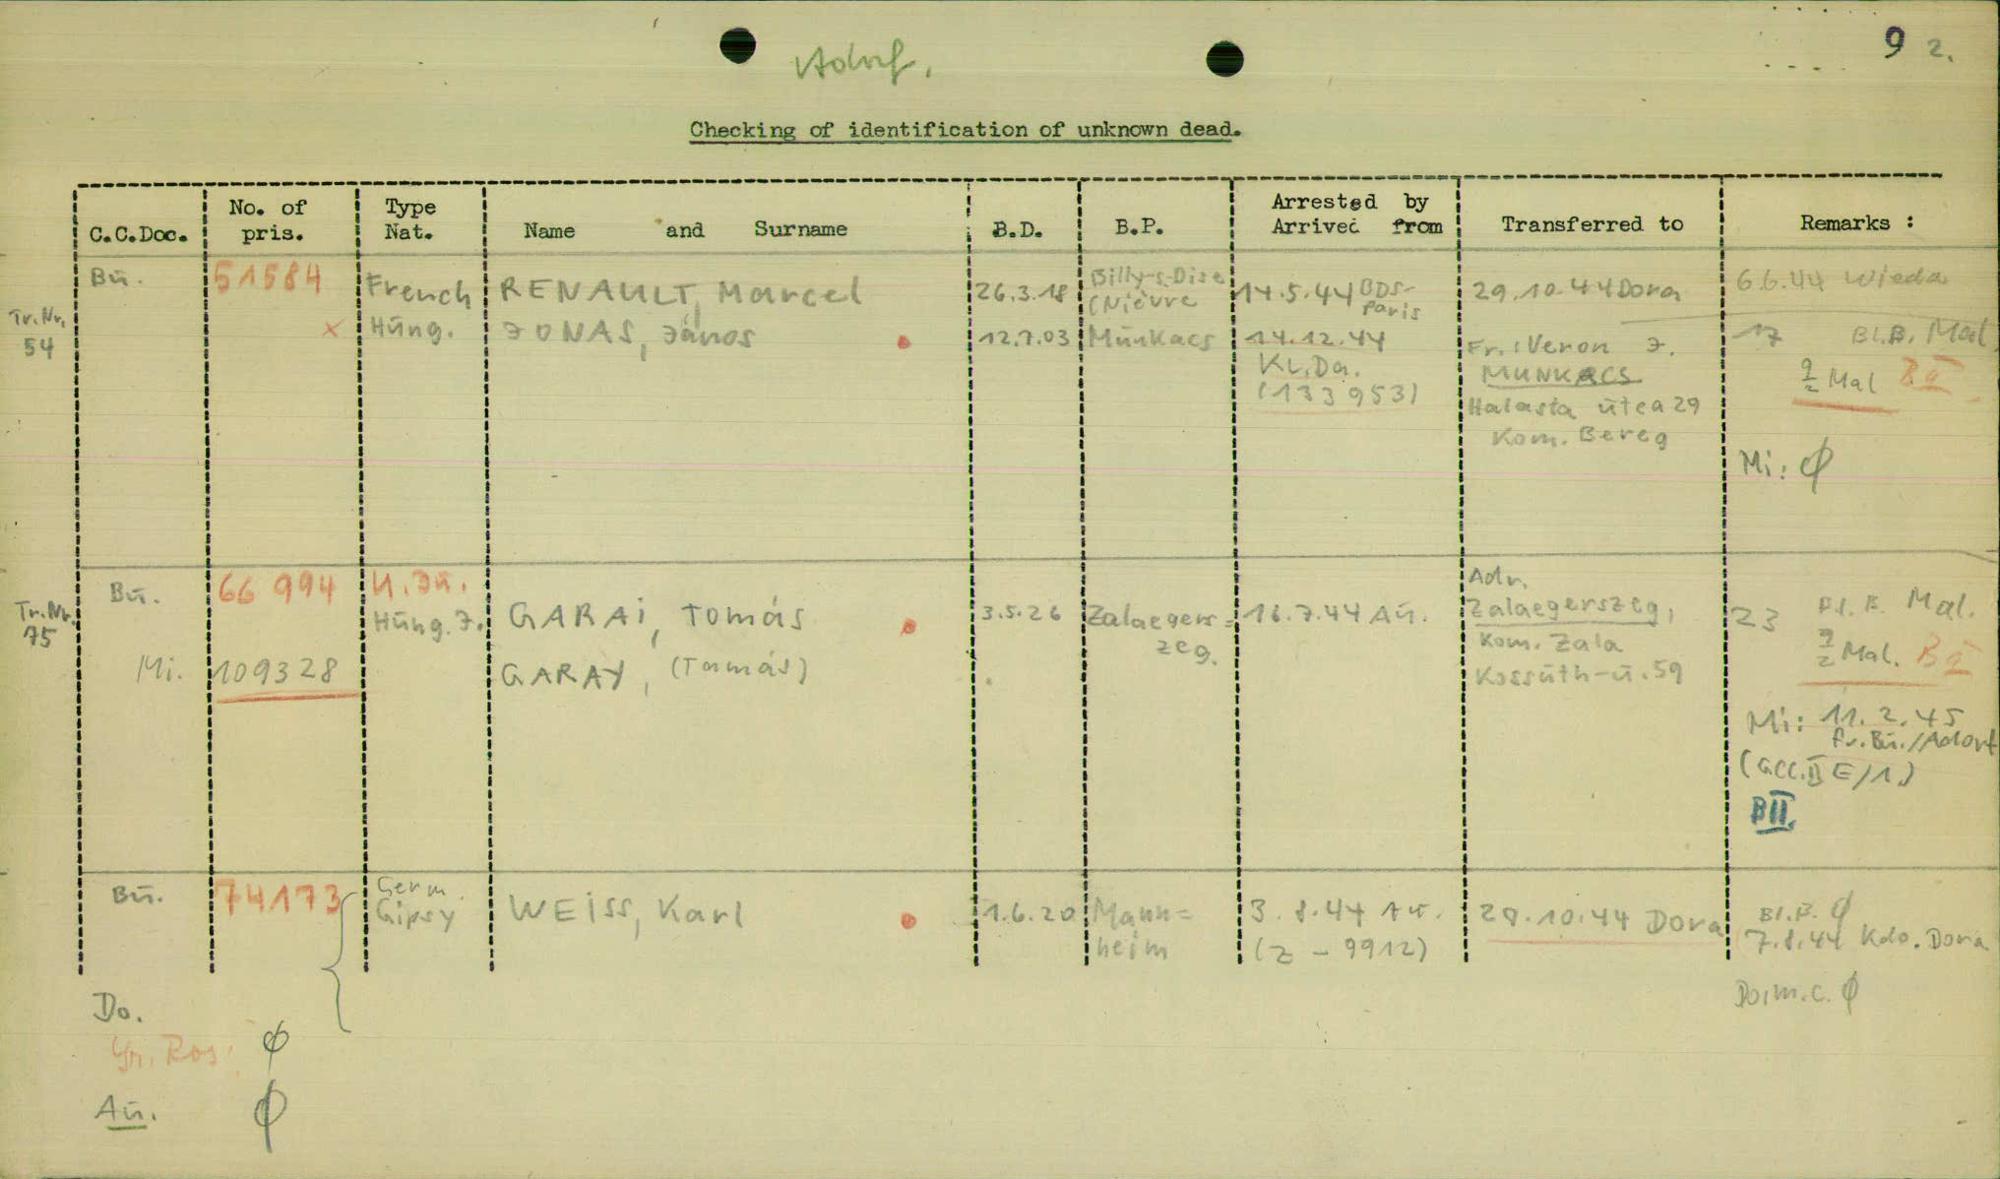 Adorf.
9 2.
Checking of identification of unknown dead.
C.C.Doc. No. of pris. Type Nat. Name and Surname B.D. B.P. Arrested by Arrived from Transferred to Remarks :
Bu. 51584 French RENAULT, Marcel 26.3.18 (Nièvre 14.5.44 BDS-Paris 29.10.44 Dora 6.6.44 Wieda
Tr.Nr. 54 x Hung. JONAS, János 12.7.03 Munkacs 14.12.44 Fr.: Veron J. 17 Bl.B. Mal
KL.Da. MUNKACS Mal BII
(133953) Halasta utca 29
Kom. Bereg
Mi: ϕ
Bu. 66 994 U.Ju. Adr.
Tr.Nr. 75 Hung. J. GARAI, Tomás 3.5.26 Zalaegers=zeg. 16.7.44 Au. Zalaegerszeg, 23 Bl.B. Mal.
Kom. Zala Mal. BII
Mi. 109328 GARAY, (Tamás) Kossuth-u.59
Mi: 11.2.45
fr. Bu./Adorf
(GCC.II E/1)
BII.
Bu. 74173 Germ. Gipsy WEISS, Karl 1.6.20 Mann=heim 3.8.44 Au. 28.10.44 Dora Bl.B. ϕ
(Z - 9912) 7.8.44 Kdo. Dora
Do. ϕ
Do.
Gr. Ros: ϕ
Au. ϕ